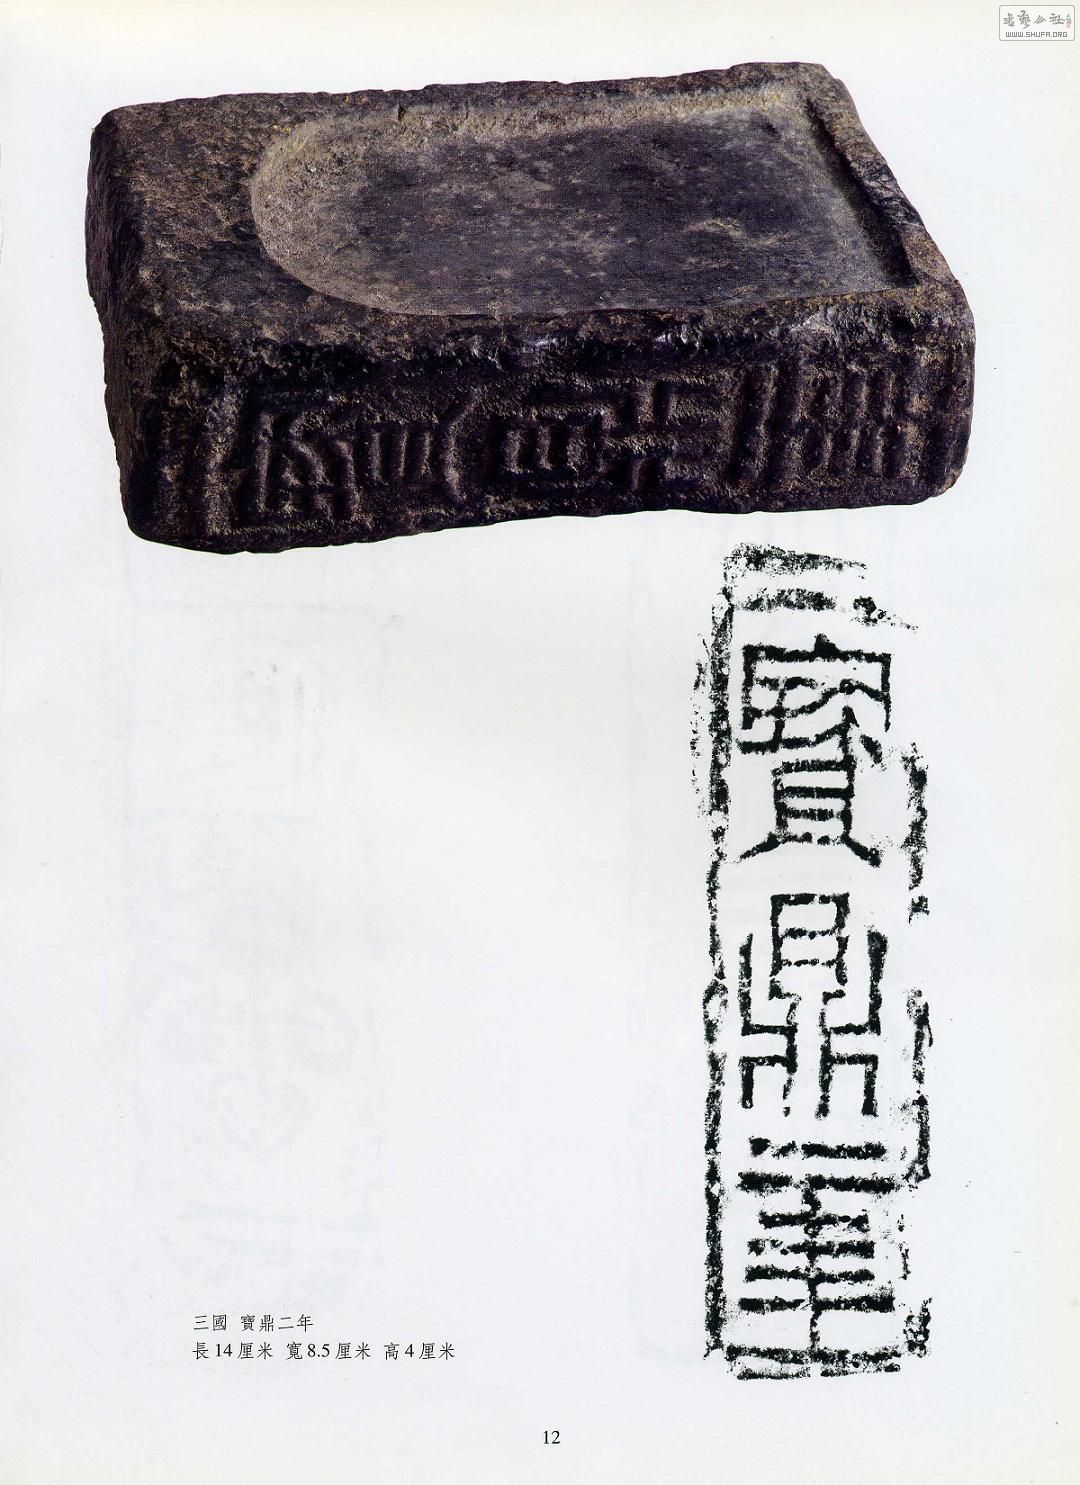 書藝公社
WWW.SHUFA.ORG
寶鼎二年
三國 寶鼎二年
長14厘米 寬8.5厘米 高4厘米
12